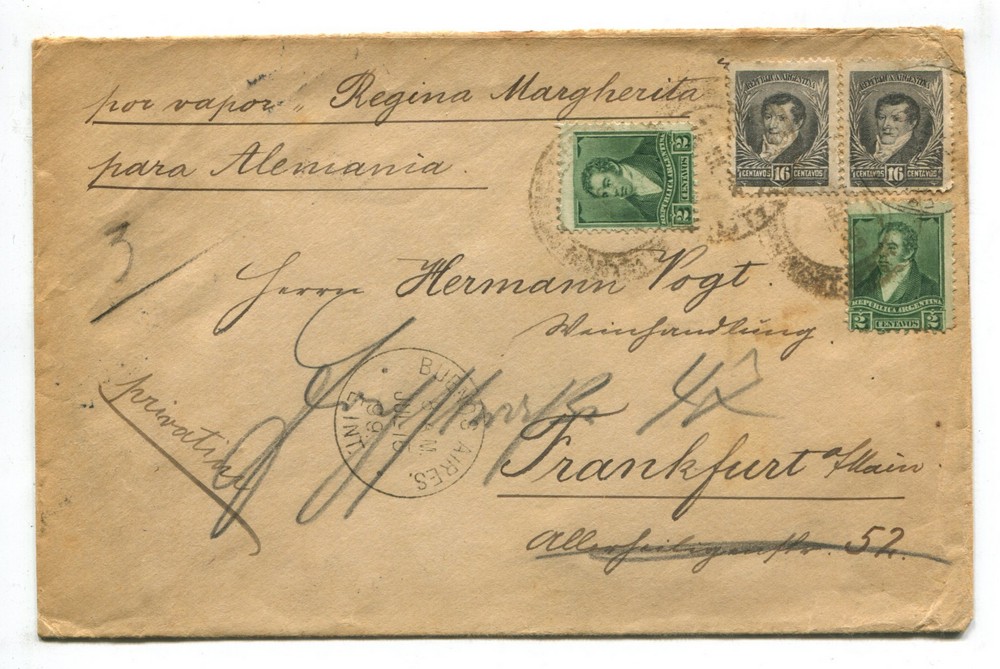 por vapor „ Regina Margherita
para Alemania.
REPUBLICA ARGENTINA
CENTAVOS 16 CENTAVOS
REPUBLICA ARGENTINA
CENTAVOS 16 CENTAVOS
REPUBLICA ARGENTINA
2 CENTAVOS 2
REPUBLICA ARGENTINA
2 CENTAVOS 2
3/
Herrn Hermann Vogt.
Weinhandlung.
privatim
BUENOS AIRES
JUN 15
99
Frankfurt a/Main.
Allerheiligenstr. 52.